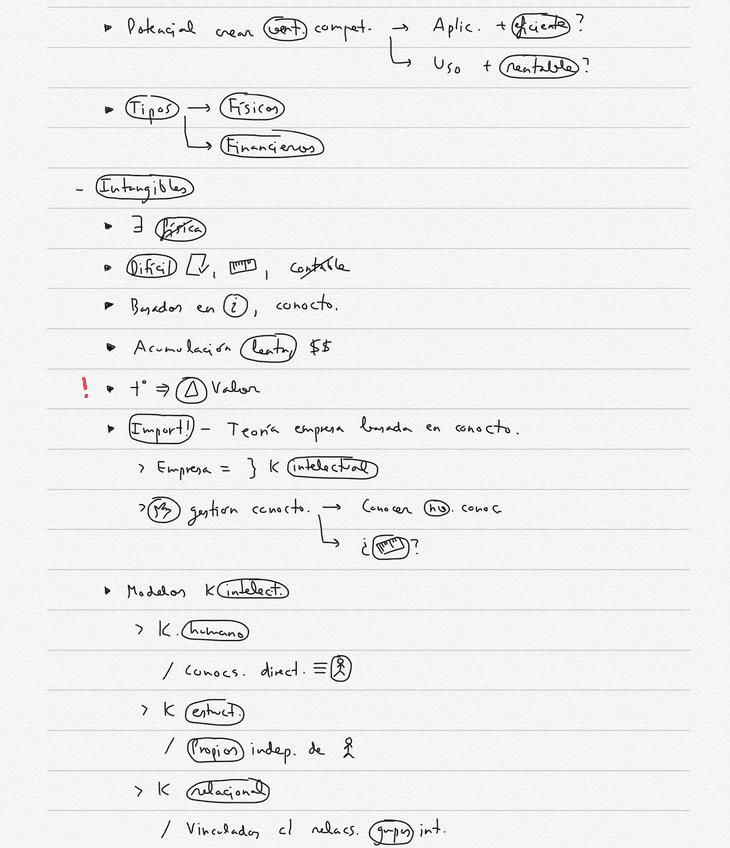 ▸ Potencial crear vent. compet. → Aplic. + eficiente?
↳ Uso + rentable?
▸ Tipos → Físicos
↳ Financieros
- Intangibles
▸ ∃ física
▸ Difícil , , contable
▸ Basados en i, conocto.
▸ Acumulación lenta, $$
! ▸ tº ⇒ △ Valor
▸ Import! - Teoría empresa basada en conocto.
> Empresa = } K intelectual
> gestión conocto. → Conocer conoc
↳ ¿ ?
▸ Modelos K intelect.
> K. humano
/ Conocs. direct. ≡
> K estruct.
/ Propios indep. de
> K relacional
/ Vinculados c/ relacs. grupos int.